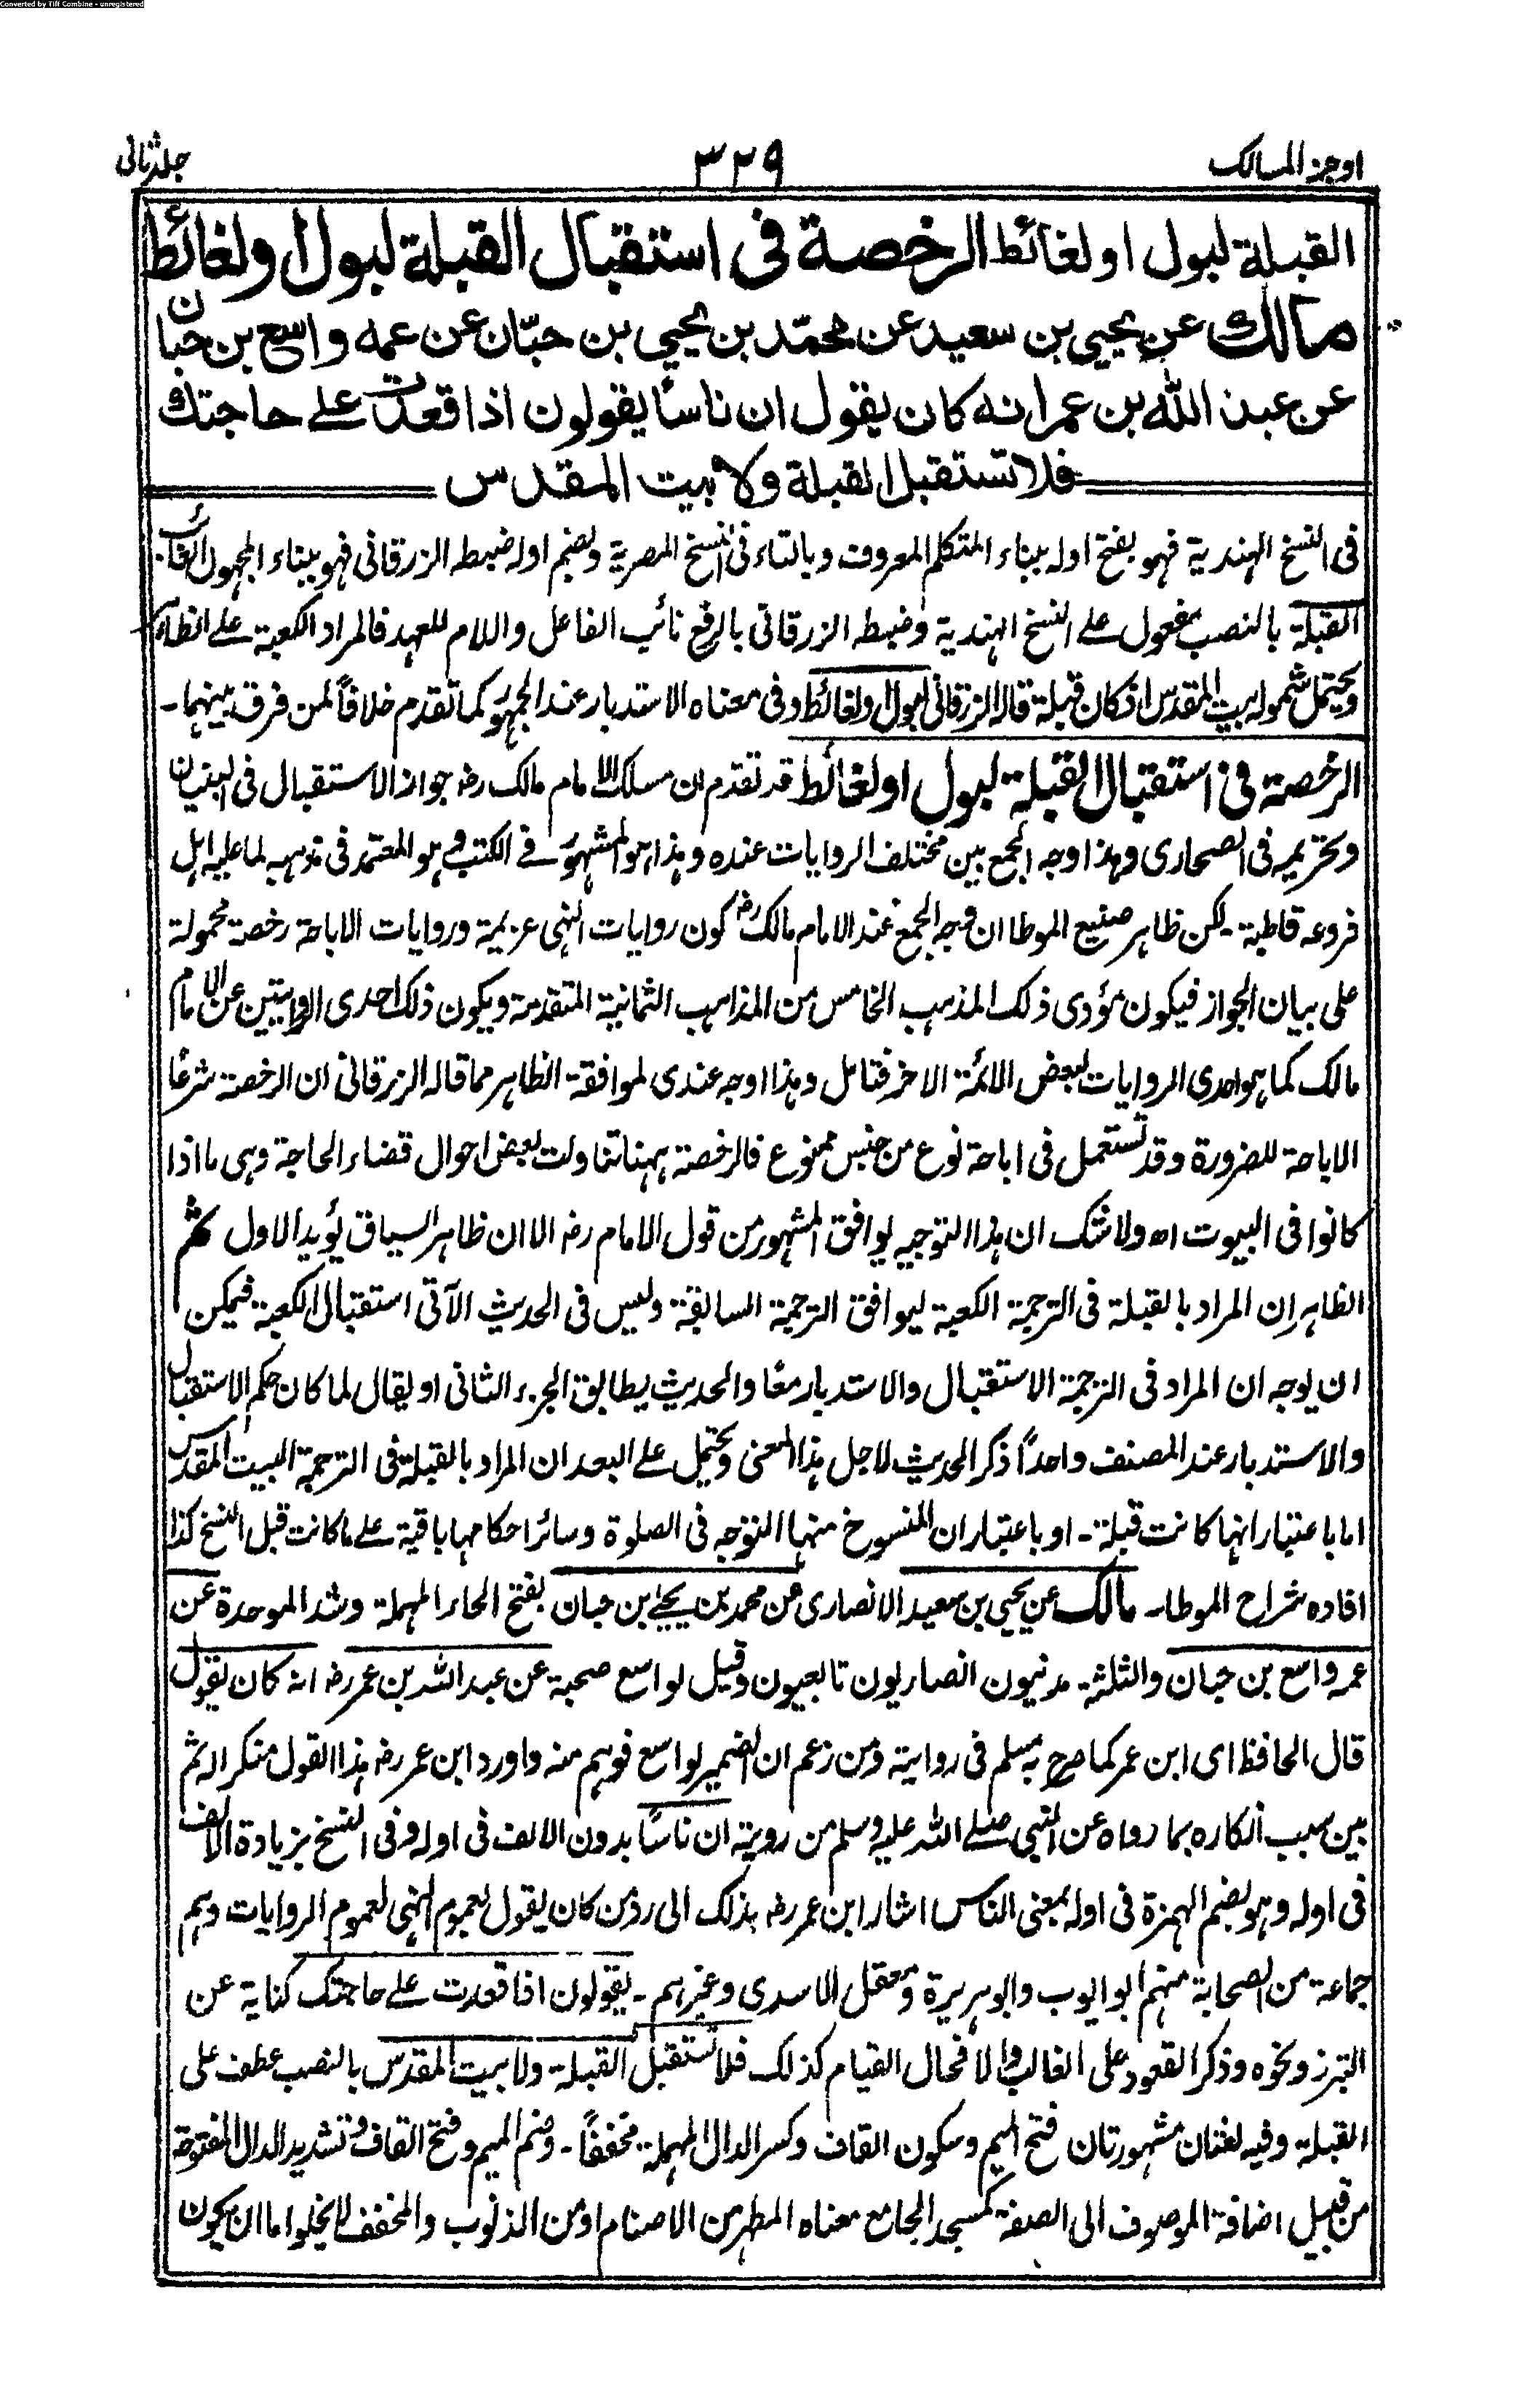 Converted by Tiff Combine - unregistered
اوجز المسالك ٣٢٩ جلد ثانی
القبلة لبول او لغائط الرخصة فى استقبال القبلة لبول او لغائط
مالك عن يحيى بن سعيد عن محمّد بن يحيى بن حبّان عن عمه واسع بن حبّان
عن عبد الله بن عمر انه كان يقول ان ناسًا يقولون اذا قعدت على حاجتك
فلا تستقبل القبلة ولا بيت المقدس
فى النسخ الهندية فهو بفتح اوله ببناء المتكلم المعروف وبالتاء فى النسخ المصرية وبضم اوله ضبطه الزرقانى فهو ببناء المجهول الغائب
القبلة بالنصب مفعول على النسخ الهندية وضبط الزرقانى بالرفع نائب الفاعل واللام للعهد فالمراد الكعبة على الظاهر
ويحتمل شموله بيت المقدس اذ كان قبلة قاله الزرقانى لبول او لغائط وفى معناه الاستدبار عند الجمهور كما تقدم خلافاً لمن فرق بينهما -
الرخصة فى استقبال القبلة لبول او لغائط قد تقدم ان مسلك الامام مالك رض جواز الاستقبال فى البنيان
وتحريمه فى الصحارى وهذا وجه الجمع بين مختلف الروايات عنده وهذا هو المشهور فى الكتب وهو المعتمد فى مذهبه لما عليه اهل
فروعه قاطبة - لكن ظاهر صنيع الموطا ان وجه الجمع عند الامام مالك رض كون روايات النهى عزيمة وروايات الاباحة رخصة محمولة
على بيان الجواز فيكون مؤدى ذلك المذهب الخامس من المذاهب الثمانية المتقدمة ويكون ذلك احدى الروايتين عن الامام
مالك كما هو احدى الروايات لبعض الائمة الاخر فتامل وهذا اوجه عندى لموافقة الظاهر مما قاله الزرقانى ان الرخصة شرعًا
الاباحة للضرورة وقد تستعمل فى اباحة نوع من جنس ممنوع فالرخصة ههنا تناولت بعض احوال قضاء الحاجة وهى ما اذا
كانوا فى البيوت اه ولا شك ان هذا التوجيه يوافق المشهور من قول الامام رض الا ان ظاهر السياق يؤيد الاول ثم
الظاهر ان المراد بالقبلة فى الترجمة الكعبة ليوافق الترجمة السابقة وليس فى الحديث الآتى استقبال الكعبة فيمكن
ان يوجه ان المراد فى الترجمة الاستقبال والاستدبار معًا والحديث يطابق الجزء الثانى او يقال لما كان حكم الاستقبال
والاستدبار عند المصنف واحداً ذكر الحديث لاجل هذا المعنى ويحتمل على البعد ان المراد بالقبلة فى الترجمة البيت المقدس
اما باعتبار انها كانت قبلة - او باعتبار ان المنسوخ منها التوجه فى الصلوة وسائر احكامها باقية على ما كانت قبل النسخ كذا
افاده شراح الموطا - مالك عن يحيى بن سعيد الانصارى عن محمد بن يحيى بن حبان بفتح الحاء المهملة وشد الموحدة عن
عمه واسع بن حبان والثلثة مدنيون انصاريون تابعيون وقيل لواسع صحبة عن عبد الله بن عمر رض انه كان يقول
قال الحافظ اى ابن عمر كما صرح به مسلم فى روايته ومن زعم ان الضمير لواسع فوهم منه واورد ابن عمر رض هذا القول منكرا له ثم
بين سبب انكاره بما رواه عن النبى صلے الله عليه وسلم من رويته ان ناسًا بدون الالف فى اوله وفى النسخ بزيادة الالف
فى اوله وهو بضم الهمزة فى اوله بمعنى الناس اشار ابن عمر رض بذلك الى رد من كان يقول بعموم النهى لعموم الروايات وهم
جماعة من الصحابة منهم ابو ايوب وابو هريرة ومعقل الاسدى وغيرهم - يقولون اذا قعدت على حاجتك كناية عن
التبرز ونحوه وذكر القعود على الغالب والا فحال القيام كذلك فلا تستقبل القبلة ولا بيت المقدس بالنصب عطف على
القبلة وفيه لغتان مشهورتان فتح الميم وسكون القاف وكسر الدال المهملة مخففاً - وضم الميم وفتح القاف وتشديد الدال المفتوحة
من قبيل اضافة الموصوف الى الصفة كمسجد الجامع معناه المطهر من الاصنام او من الذنوب والمخفف لا يخلوا ما ان يكون